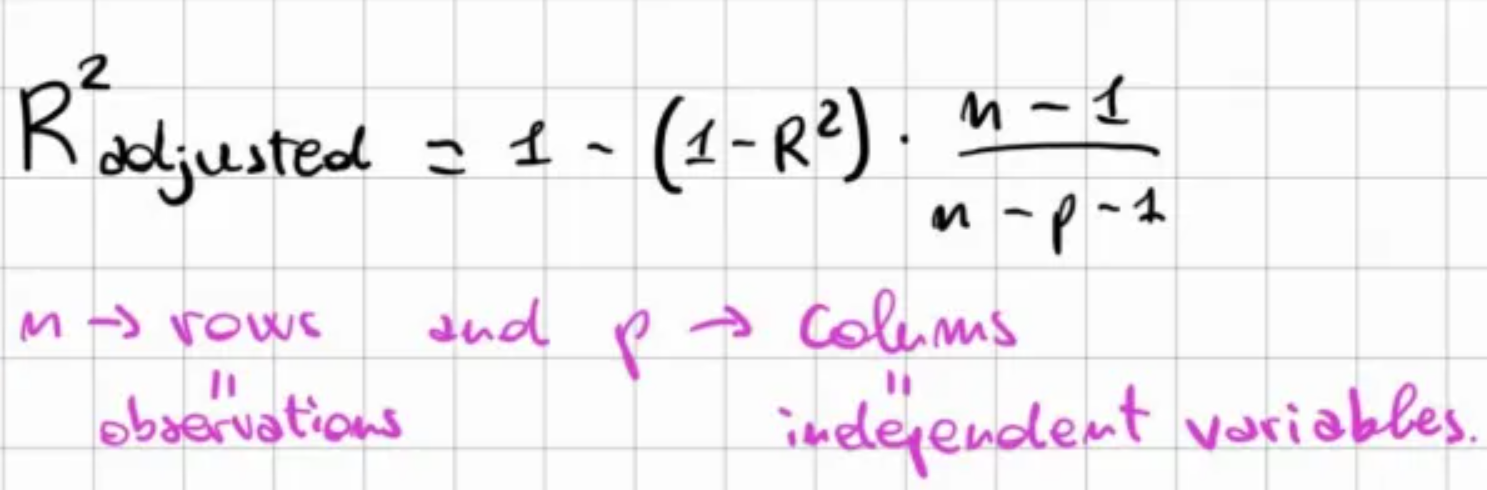 R² adjusted = 1 - (1-R²) · (n-1)/(n-p-1)
n → rows and p → Colums
" "
observations independent variables.